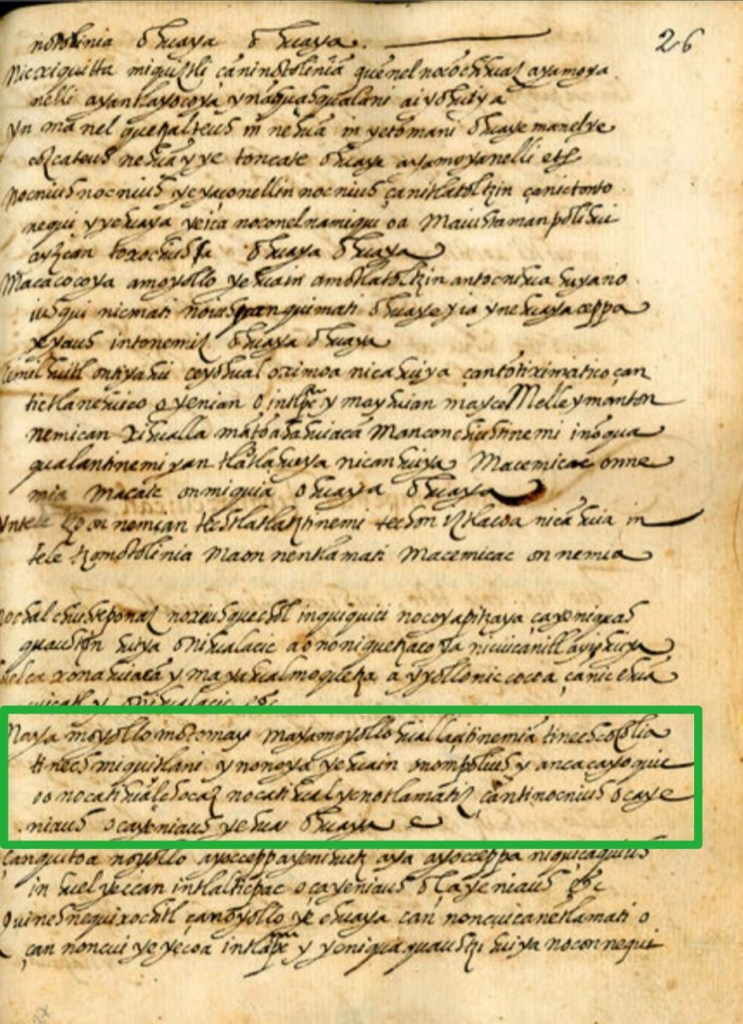 notolinia Ohuaya Ohuaya.
26
Nicxiquitta miquiztli can ninotolinia quenel nocochihuaz ayamoya
nelli ayantlayocoya ynaquaqualani aiyohuiya
Yn ma nel quetzalteuh in nehua in yetomani Ohuaye manelye
cozcateuh nehua y ye toncate Ohuaya ayamoyanelli etc
Nocniuh nocniuh yeyaconellin nocniuh çanitlatoltzin çanictonto
nequi yyehuaya yeica noconelnamiqui oa Maiuhtamanpolihui
ayzcan toxochiuh a Ohuaya Ohuaya
Macacocoya amoyollo yehuain amotlatoltzin antocnihua huyano
iuhqui nicmati noiuhquimati Ohuaye yia ynehuaya ceppa
yeyauh intonemiz Ohuaya Ohuaya
Cemilhuitl ontiyahui ceyohual oximoa nicahuiya çantotiximatico çan
tictlanehuico oyenian o intlpc y mayhuian mayce Melleymanton
nemican xihualla matoahahuiaca Manconchiuhtinemi inoqua
qualantinemi yan tlatlahueya nicanhuiya Macemicac onne
mia macaic onmiquia Ohuaya Ohuaya
Yntele on nemian techtlatlaztinemi techon iztlacoa nicahuia in
tele tzonotolinia Maon nentlamati Macemicac on nemia
Nochalchiuhteponaz noxiuhquechol inquiquici nocoyapitzaya çayeniquauh
quauhtzin huiya Onihualacic aononiquetzaco ya nicuicanitl ayyohuiya
Celca xonahuiaca y mayahualmoquetza a yyollonic cocoa çanicehua
cuicatl y Onihualacic etc
Maya moyollo motoma y mayamoyollo huallaçitinemia tinechcocolia
tinechmiquitlani ynonoya yehuain onompolihui y ancaçayoquic
oo nocatihualchocaz nocatihualyenotlamatiz çantinocniuh Ocaye
niauh Ocayeniauh yehua Ohuaya e
Çanquitoa noyollo ayocceppayenihuitz aya ayocceppa niquiçaquiuh
in huel yeccan intlalticpac Ocayeniauh Ocayeniauh etc
Quinehnequixochitl çanoyollo ye ehuaya çan noncuicanetlamati o
çan noncui ye yecoa intlpc y yeniquaquauhtzi huiya noconnequi